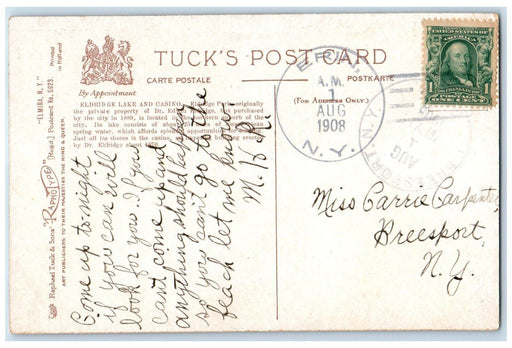 TUCK'S POST CARD
CARTE POSTALE
POSTKARTE
By Appointment
(FOR ADDRESS ONLY.)
ELDRIDGE LAKE AND CASINO.
originally
private property of Dr.
by the city in 1889, is located in the northern
city. Its lake consists of about
spring water, which affords
Just off its shores is the casino,
by Dr. Eldridge about
Come up to night
if you can will
look for you. If you
cant come up and
anything should happen
so you cant go to the
let me know.
M. H. R.
ERIN,
A.M.
1
AUG
1908
N.Y.
N.Y.
AUG
1
UNITED STATES OF AMERICA
1
ONE CENT
Miss Carrie Carpenter
Breesport,
N.Y.
Raphael Tuck & Sons' "RAPHOTYPE"
"ELMIRA, N. Y."
[Regd.] Postcard No. 5973.
ART PUBLISHERS TO THEIR MAJESTIES THE KING & QUEEN.
Printed
in Holland